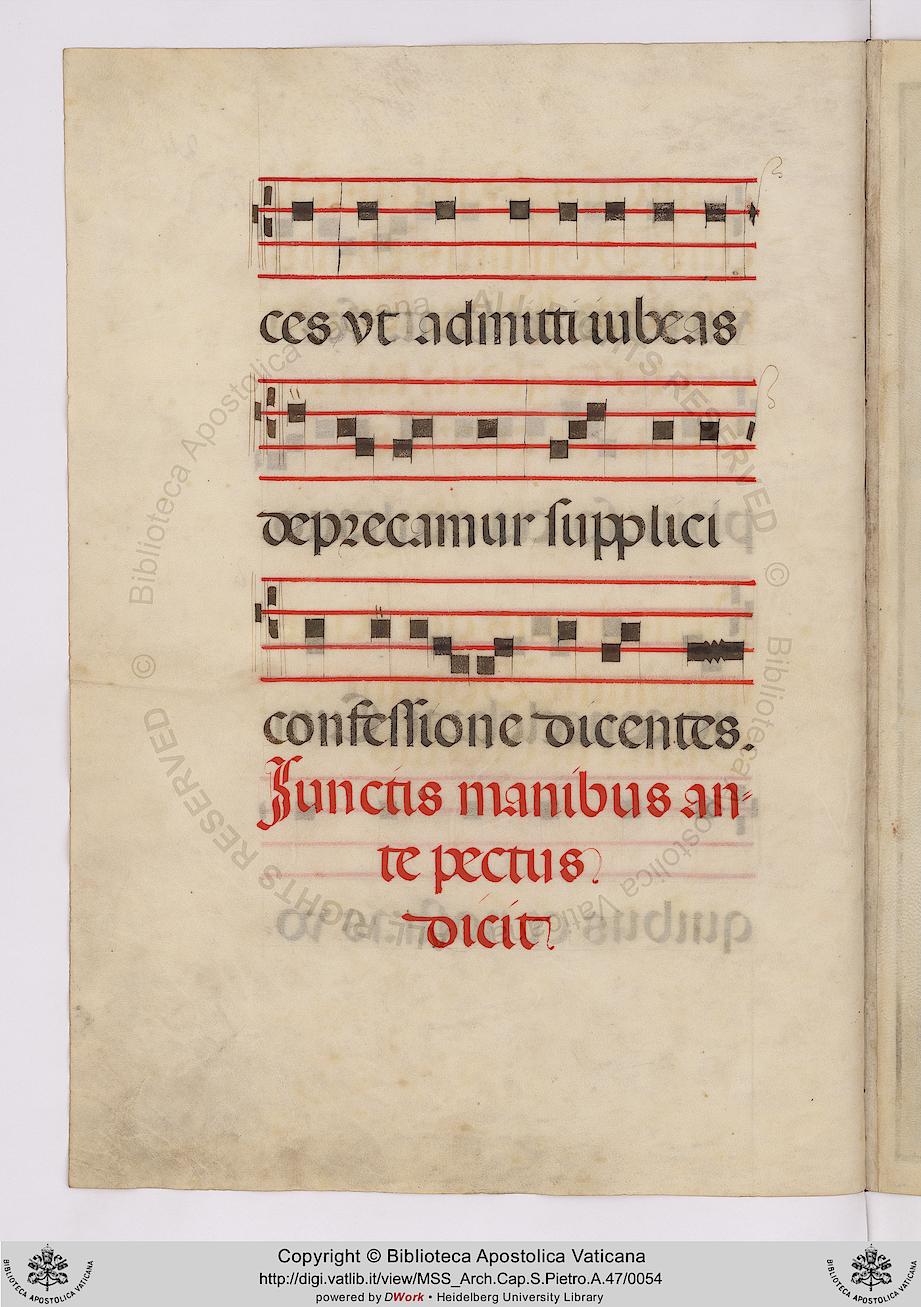 ces vt admitti iubeas
deprecamur supplici
confessione dicentes.
Junctis manibus an-
te pectus
dicit
Copyright © Biblioteca Apostolica Vaticana
http://digi.vatlib.it/view/MSS_Arch.Cap.S.Pietro.A.47/0054
powered by DWork • Heidelberg University Library
BIBLIOTECA APOSTOLICA VATICANA
BIBLIOTECA APOSTOLICA VATICANA
© Biblioteca Apostolica Vaticana ALL RIGHTS RESERVED
© Biblioteca Apostolica Vaticana ALL RIGHTS RESERVED